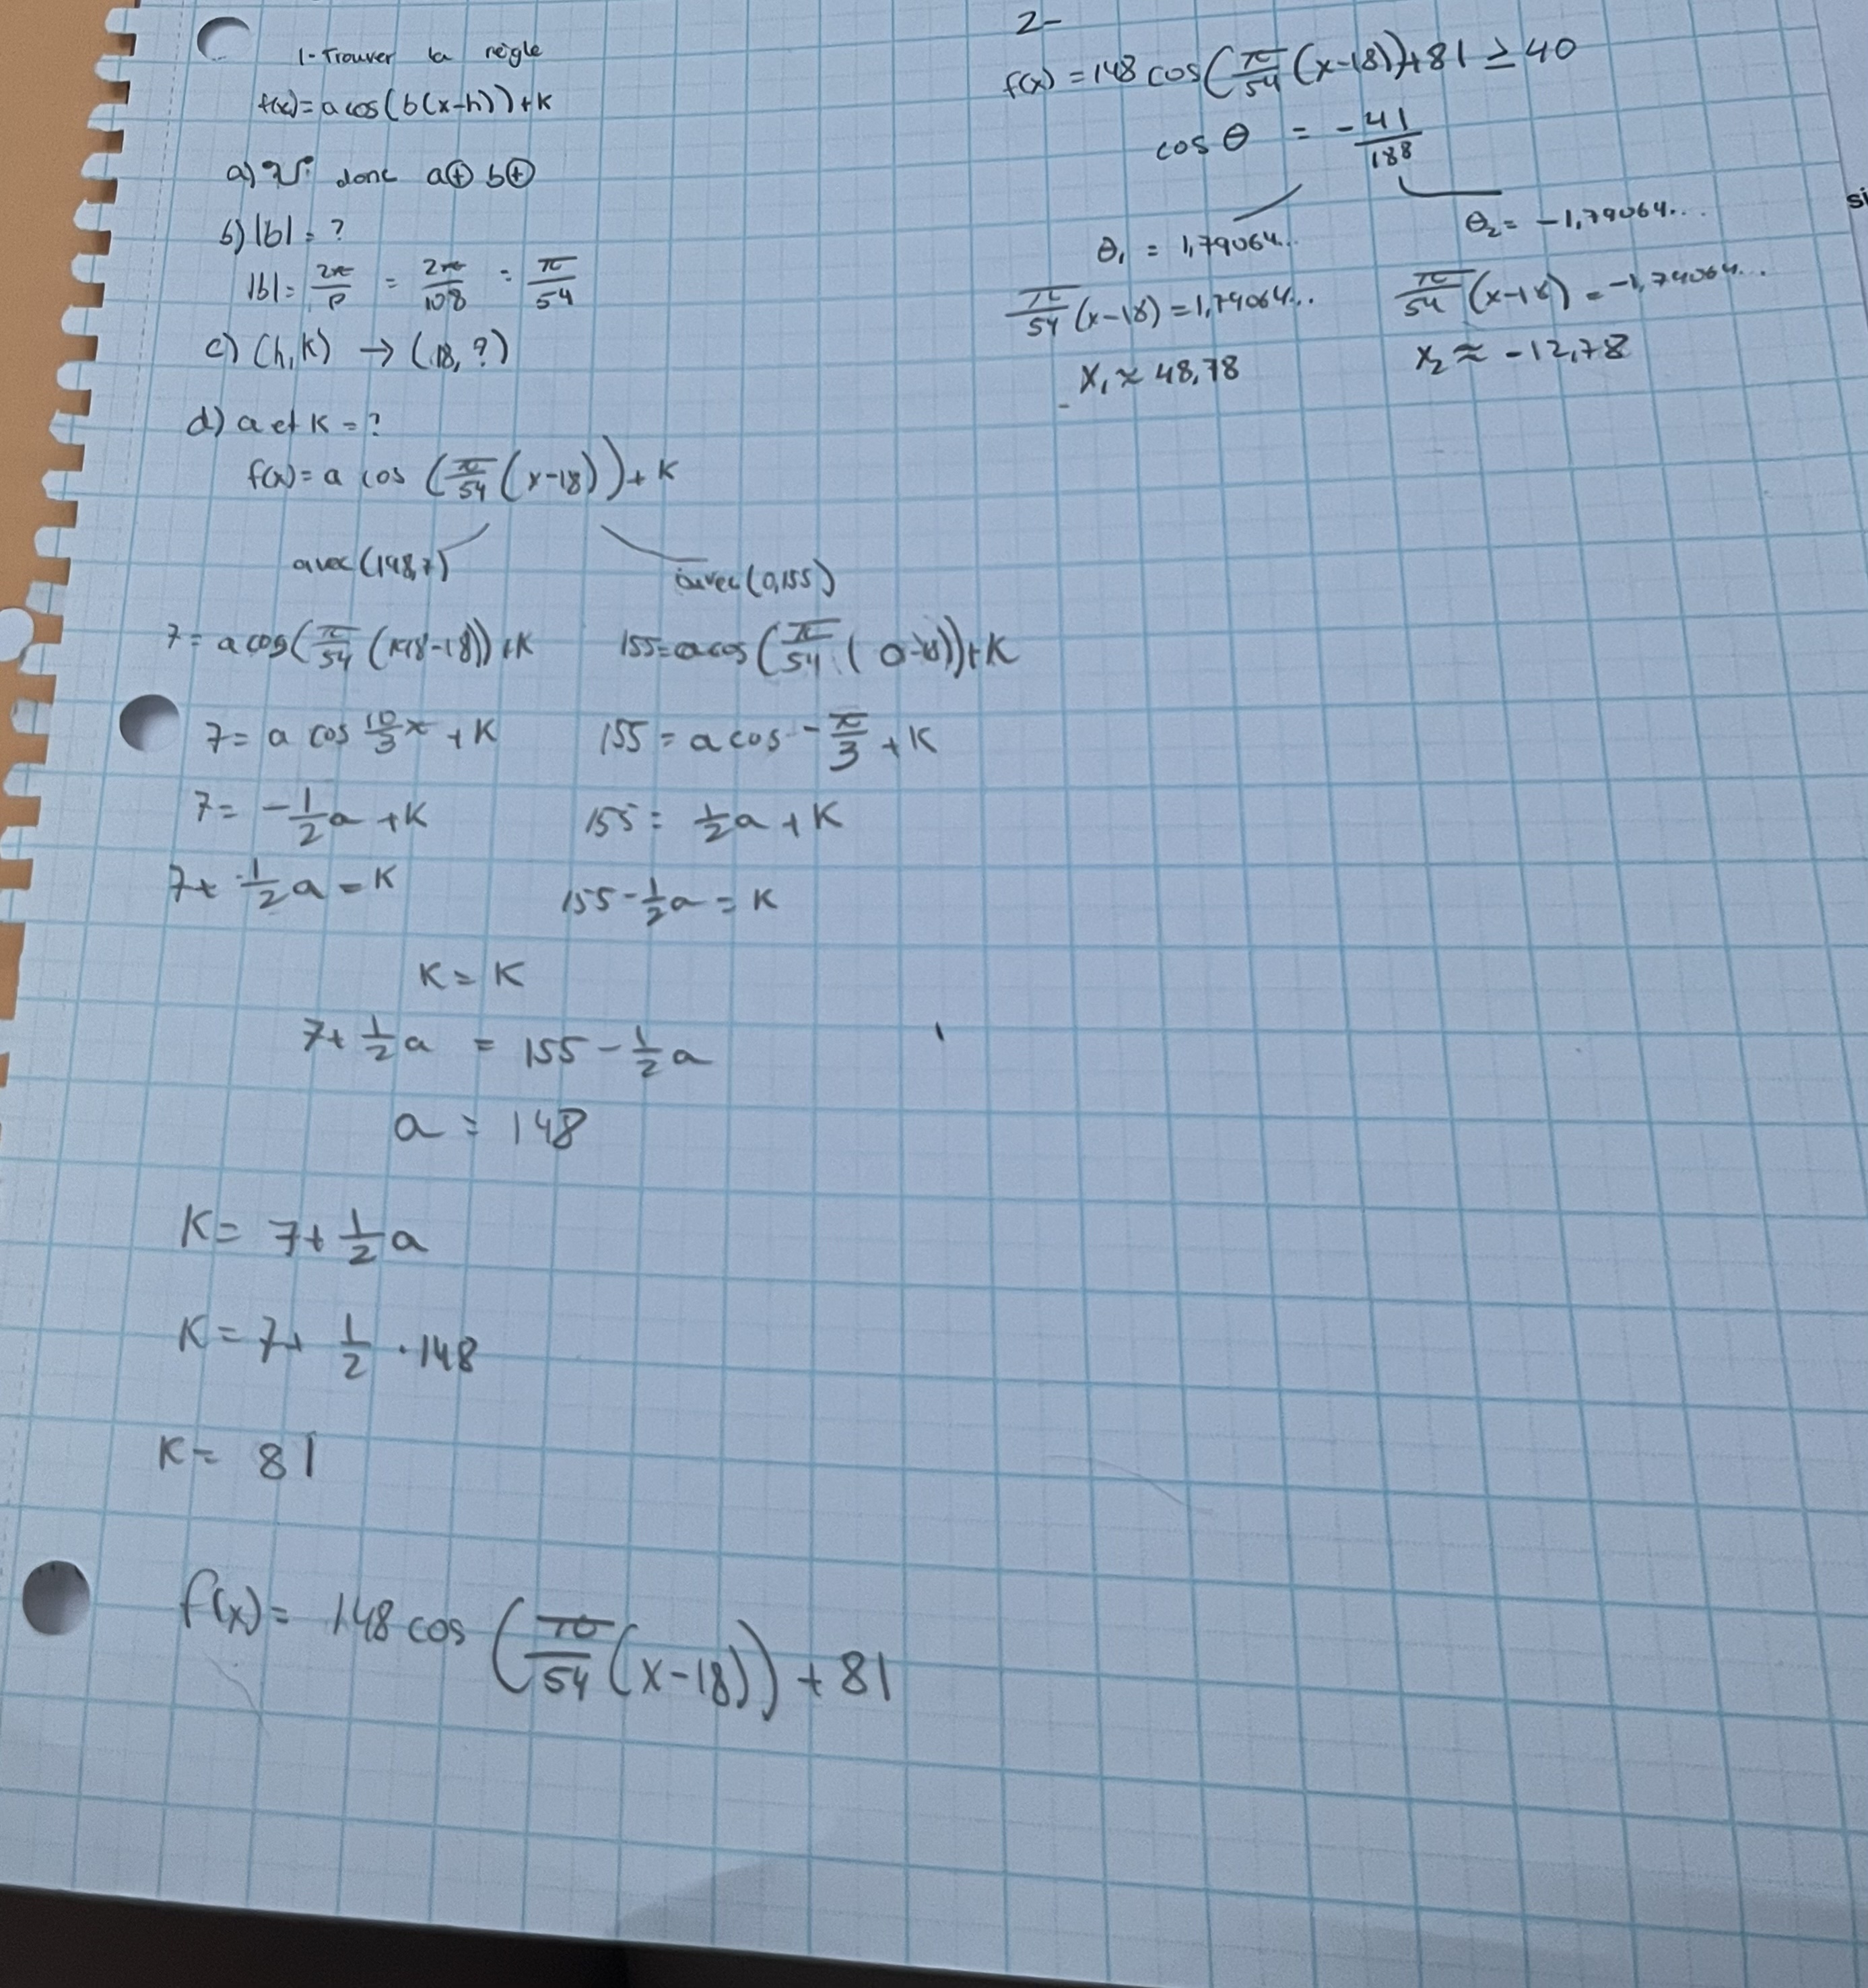 1-Trouver la règle
f(x) = a cos(b(x-h))+K
a) donc a⊕ b⊕
b) |b| = ?
|b| = 2π/P = 2π/108 = π/54
c) (h,K) → (18, ?)
d) a et K = ?
f(x) = a cos (π/54 (x-18)) + K
avec (198,7) avec (0,155)
7 = a cos(π/54 (198-18)) + K 155 = a cos (π/54 (0-18)) + K
7 = a cos 10/3 π + K 155 = a cos - π/3 + K
7 = -1/2 a + K 155 = 1/2 a + K
7 + 1/2 a = K 155 - 1/2 a = K
K = K
7 + 1/2 a = 155 - 1/2 a
a = 148
K = 7 + 1/2 a
K = 7 + 1/2 · 148
K = 81
f(x) = 148 cos (π/54 (x-18)) + 81
2-
f(x) = 148 cos(π/54 (x-18)) + 81 ≥ 40
cos θ = -41/188
θ₁ = 1,79064... θ₂ = -1,79064...
π/54 (x-18) = 1,79064... π/54 (x-18) = -1,79064...
x₁ ≈ 48,78 x₂ ≈ -12,78
si